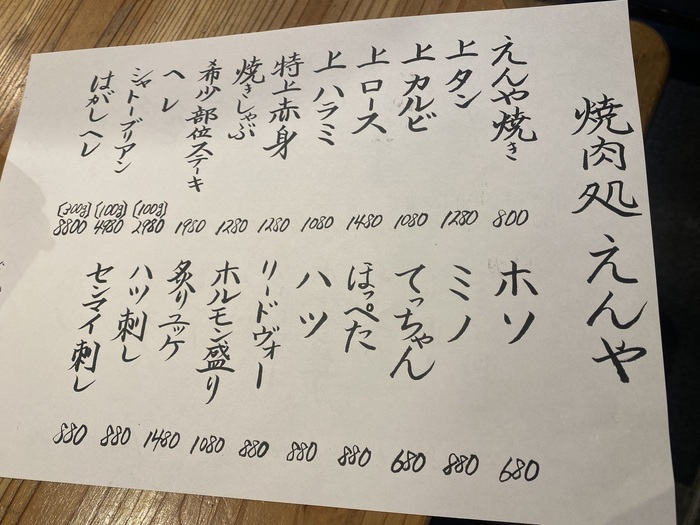 焼肉処 えんや
えんや焼き 800
上タン 1280
上カルビ 1080
上ロース 1480
上ハラミ 1080
特上赤身 1280
焼きしゃぶ 1280
希少部位ステーキ 1980
ヘレ [100g] 2980
シャトーブリアン [100g] 4980
はがしヘレ [300g] 8800
ホソ 680
ミノ 880
てっちゃん 680
ほっぺた 880
ハツ 880
リードヴォー 880
ホルモン盛り 1080
炙りユッケ 1480
ハツ刺し 880
センマイ刺し 880